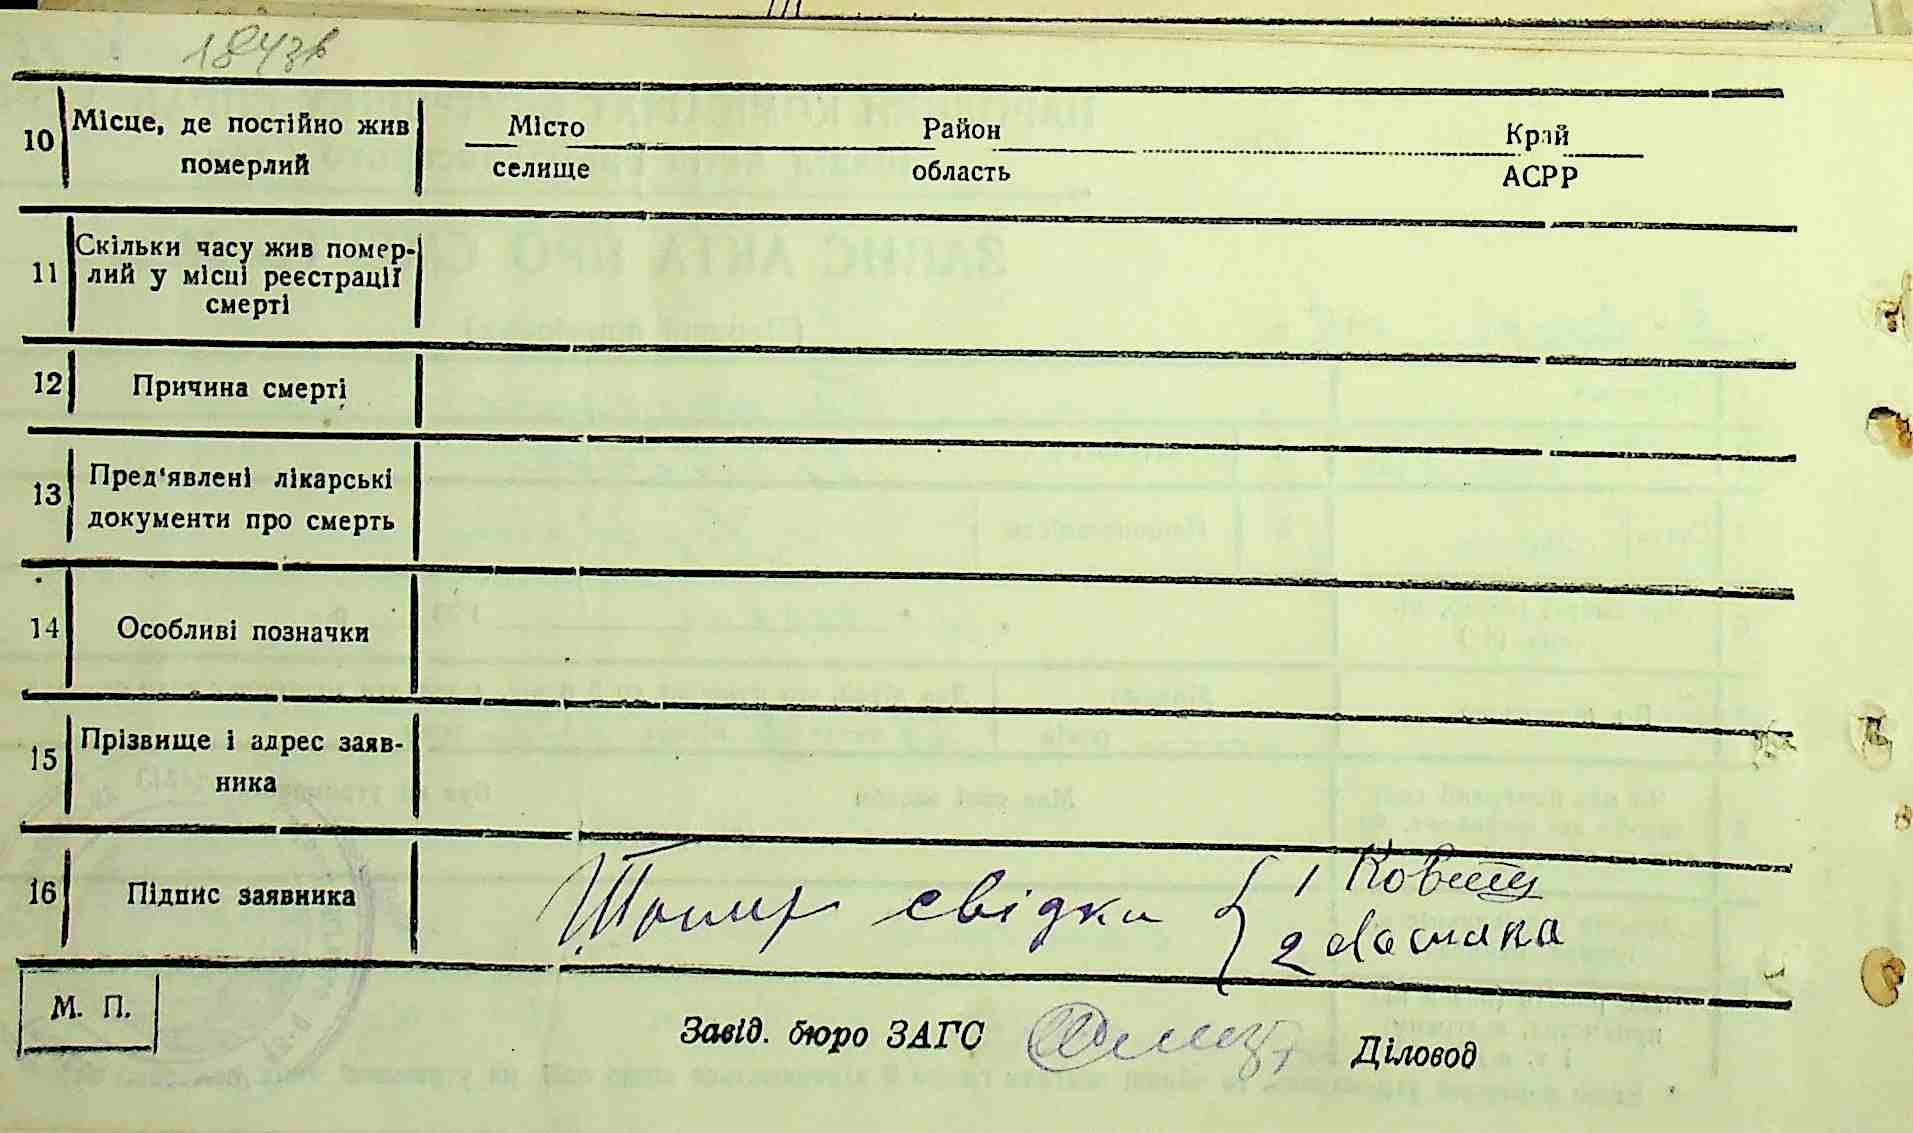 184зв
10 Місце, де постійно жив померлий
Місто селище
Район область
Край АСРР
11 Скільки часу жив помер-
лий у місці реєстрації
смерті
12 Причина смерті
13 Пред'явлені лікарські
документи про смерть
14 Особливі позначки
15 Прізвище і адрес заяв-
ника
16 Підпис заявника
свідки
1
2
М. П.
Завід. бюро ЗАГС
Діловод